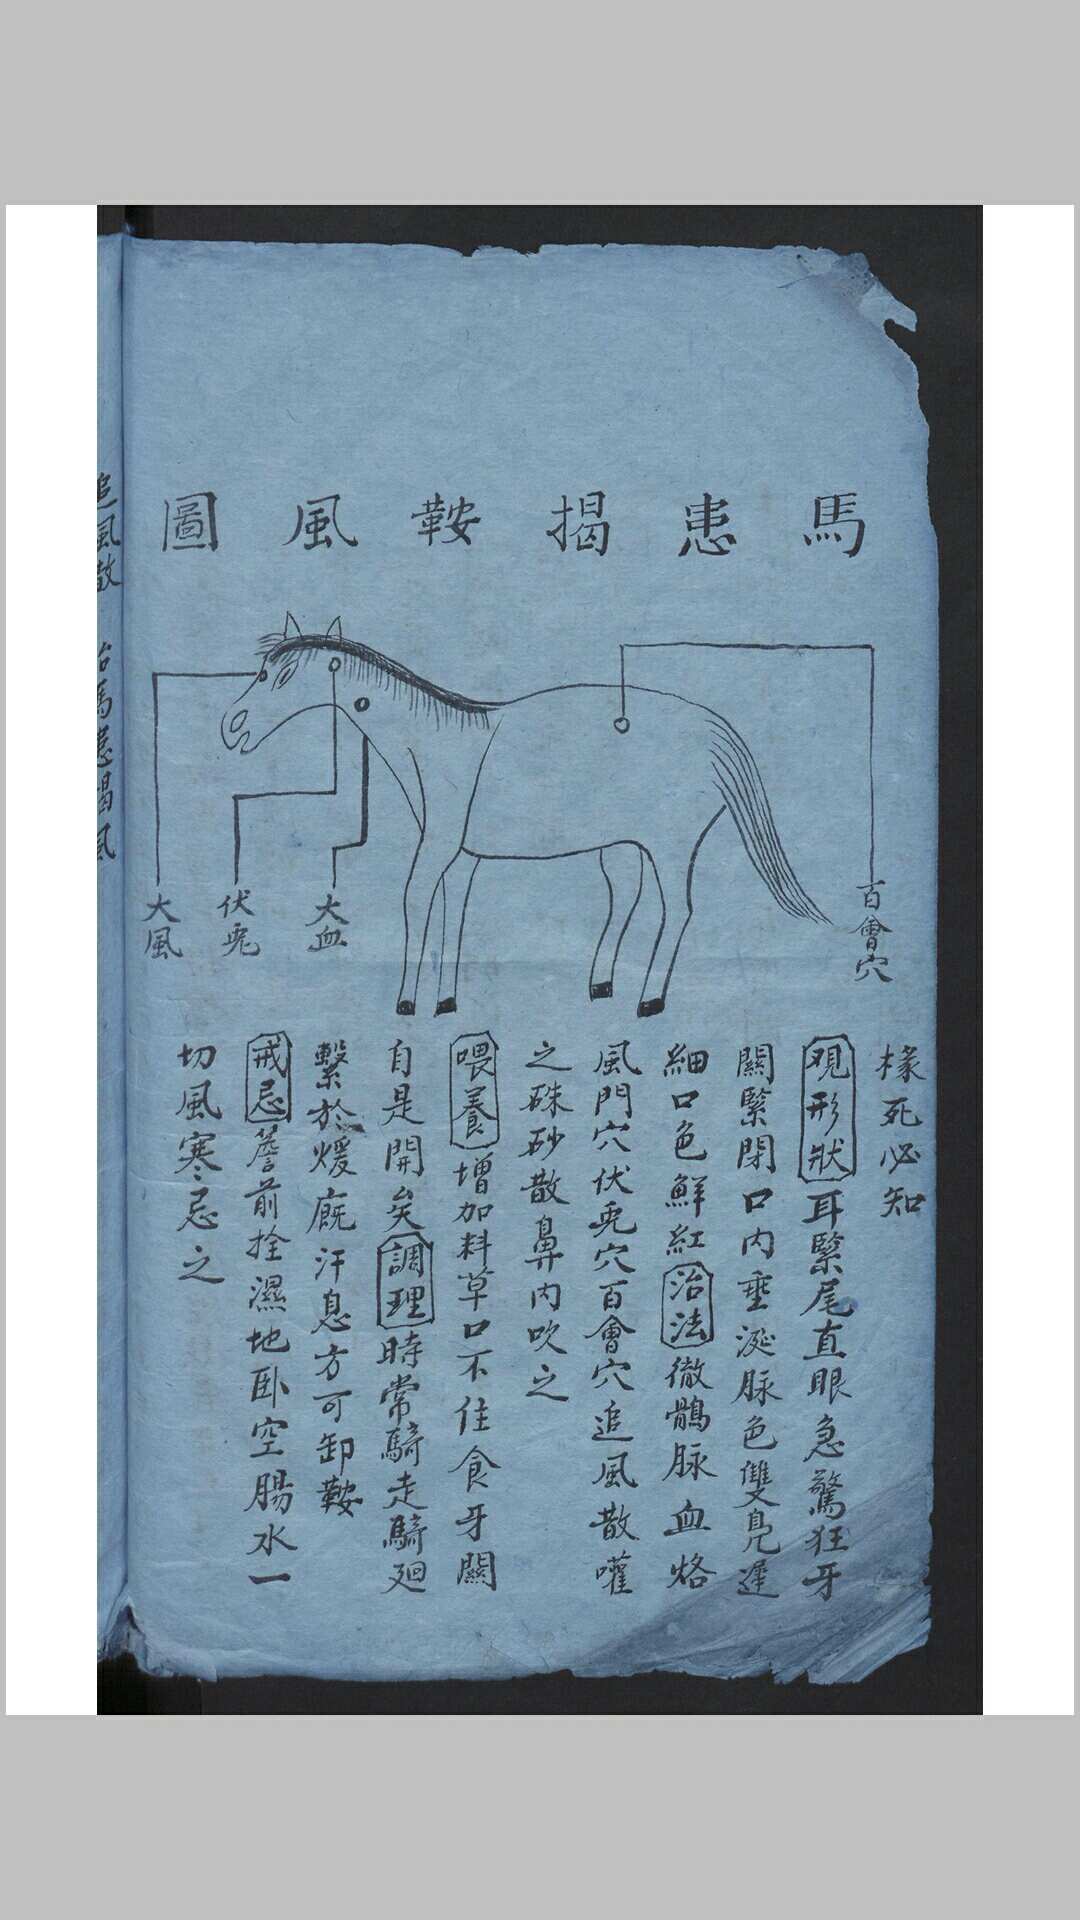 馬患揭鞍風圖
百會穴
大血
伏兎
大風
椽死必知
观形狀 耳緊尾直眼急驚狂牙
關緊閉口內垂涎脉色雙鳧遲
細口色鮮紅 治法 徹鶻脉血烙
風門穴伏兎穴百會穴追風散嚾
之硃砂散鼻內吹之
喂養 增加料草口不住食牙關
自是開矣 調理 時常騎走騎廻
繫於煖廐汗息方可卸鞍
戒忌 簷前拴濕地卧空腸水一
切風寒忌之
追風散 治馬患揭風